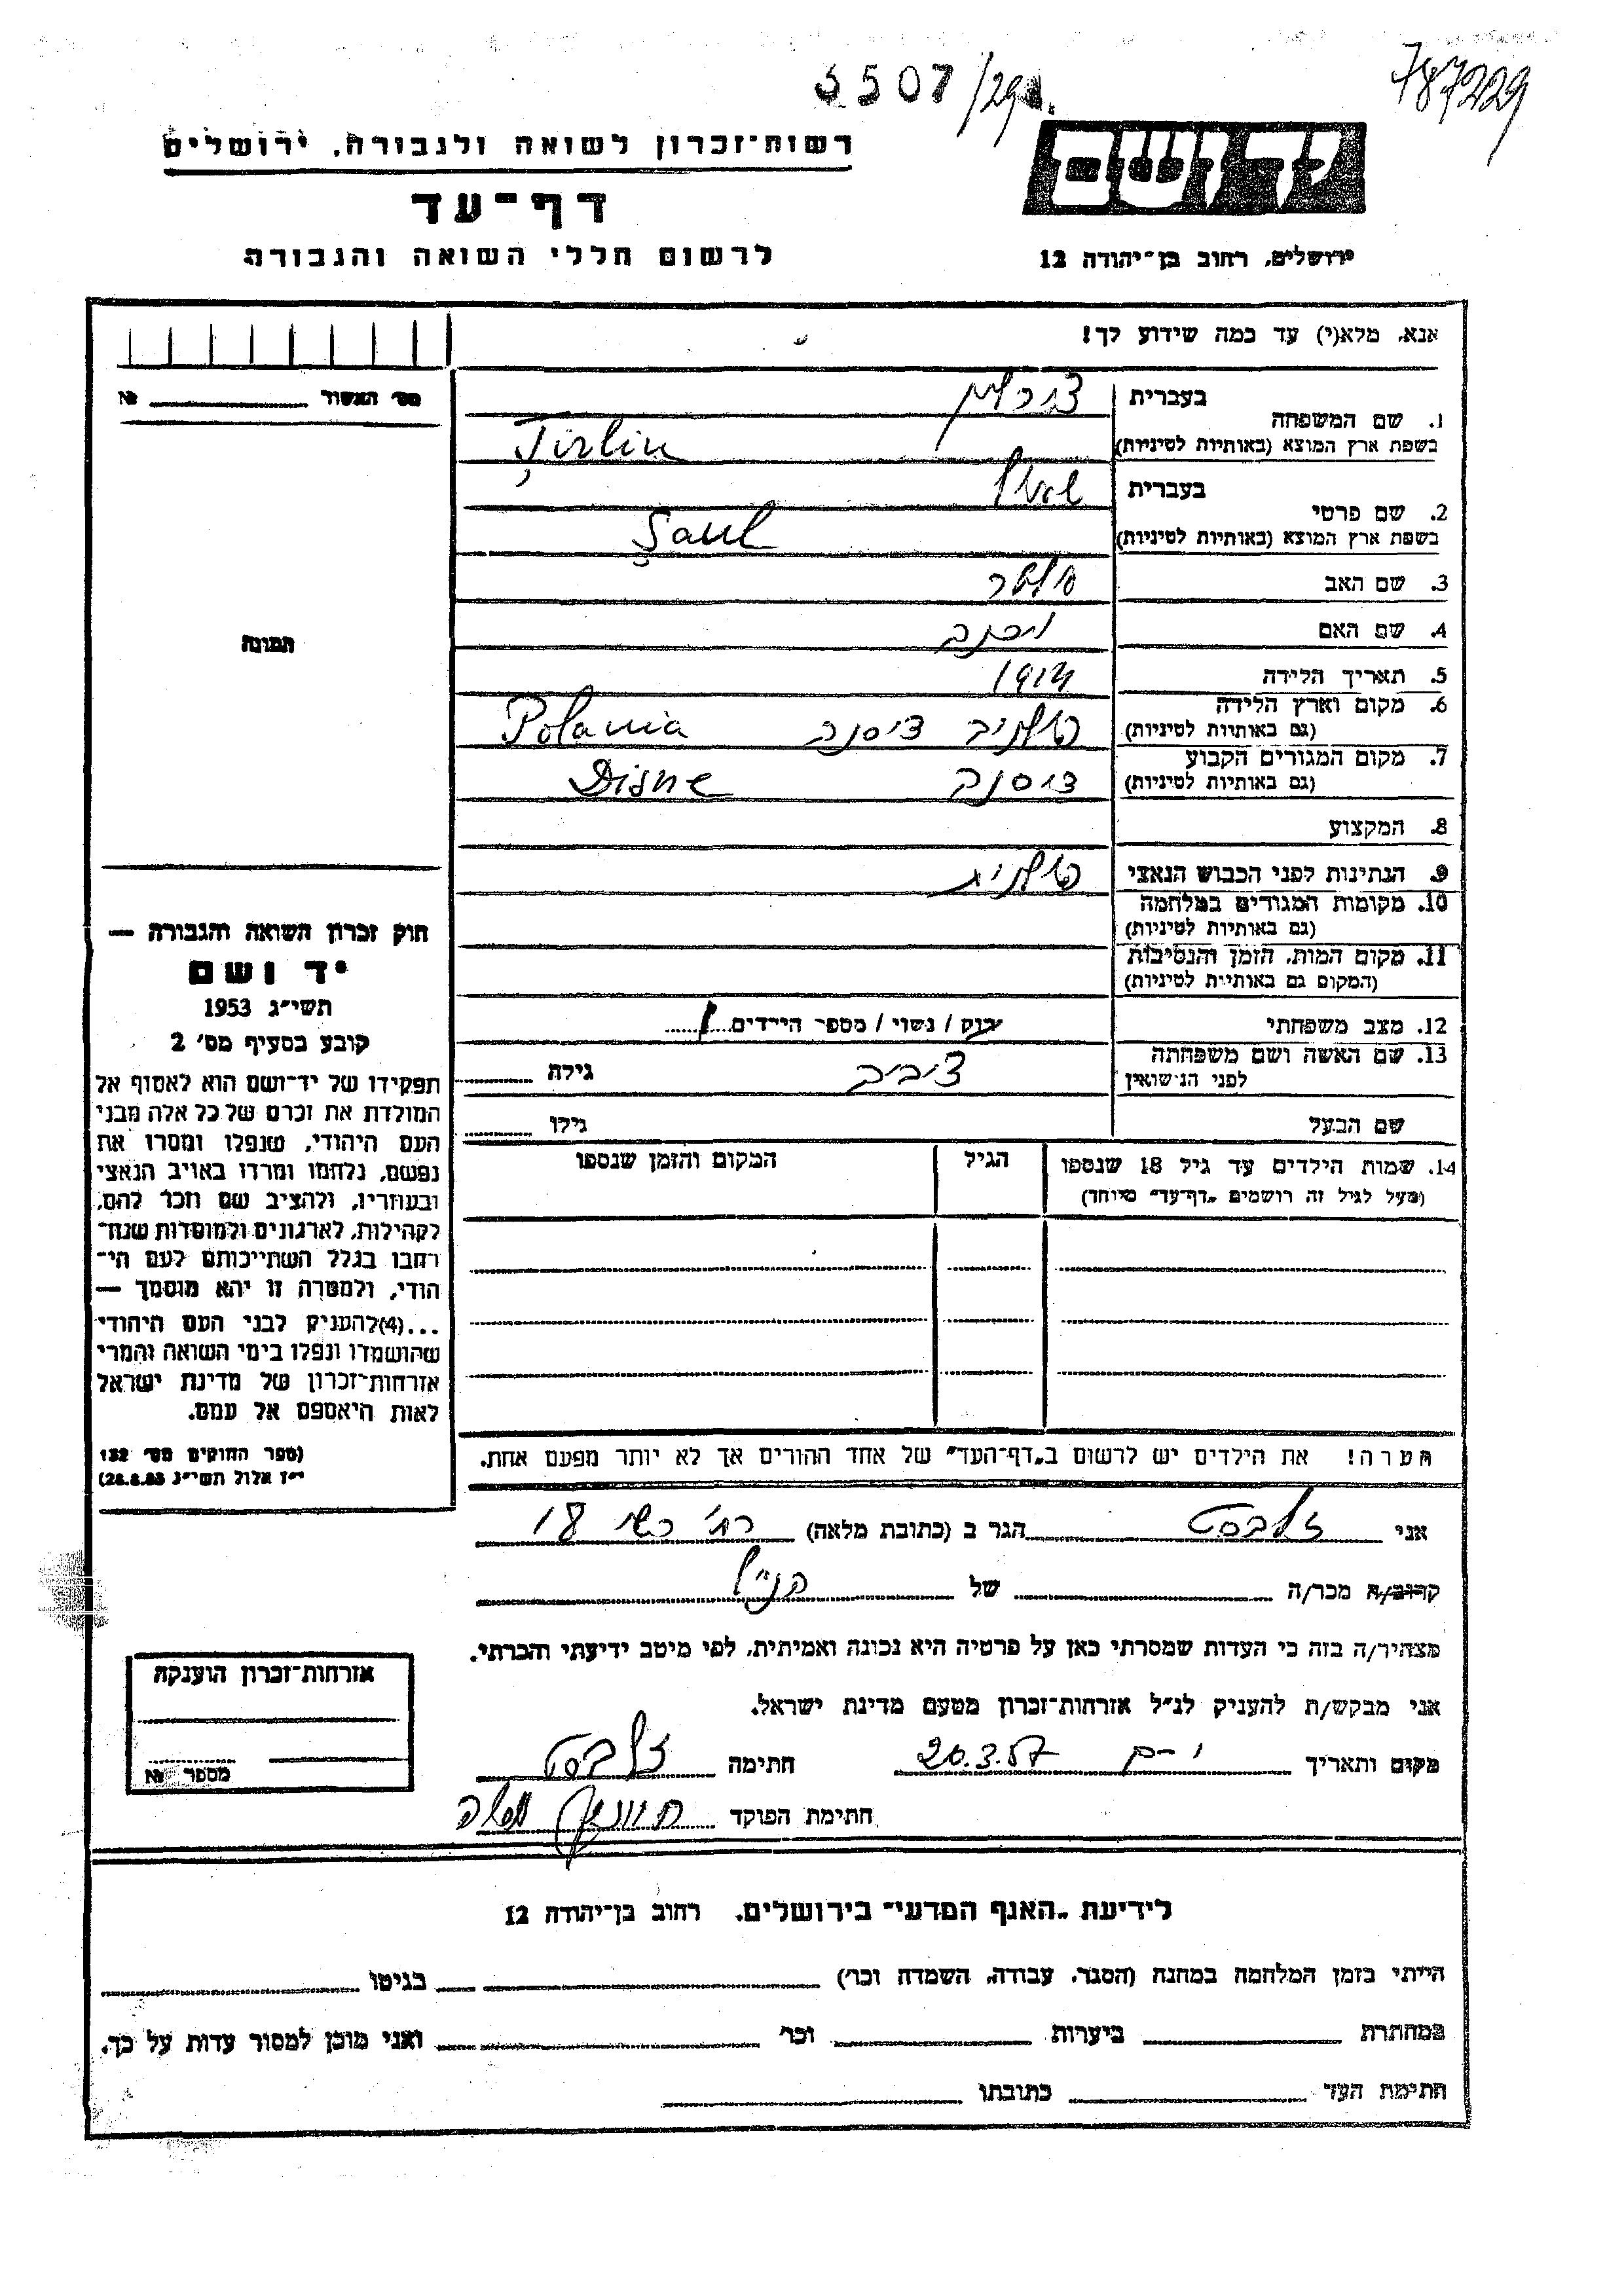 5507/29
787229
יד ושם
ירושלים, רחוב בן־יהודה 12
רשות־זכרון לשואה ולגבורה, ירושלים
דף־עד
לרשום חללי השואה והגבורה
אנא, מלא(י) עד כמה שידוע לך!
מס' האשור №
תמונה
1. שם המשפחה בעברית צירלין
בשפת ארץ המוצא (באותיות לטיניות) Țirlin
2. שם פרטי בעברית שאול
בשפת ארץ המוצא (באותיות לטיניות) Șaul
3. שם האב
4. שם האם
5. תאריך הלידה
6. מקום וארץ הלידה (גם באותיות לטיניות) פולניה דיסנה Polania
7. מקום המגורים הקבוע (גם באותיות לטיניות) דיסנה Disne
8. המקצוע
9. הנתינות לפני הכבוש הנאצי פולנית
10. מקומות המגורים במלחמה (גם באותיות לטיניות)
11. מקום המות, הזמן והנסיבות (המקום גם באותיות לטיניות)
12. מצב משפחתי רווק / נשוי / מספר הילדים 1
13. שם האשה ושם משפחתה לפני הנישואין גילה
שם הבעל גילו
14. שמות הילדים עד גיל 18 שנספו הגיל המקום והזמן שנספו
(מעל לגיל זה רושמים „דף־עד" מיוחד)
הערה! את הילדים יש לרשום ב„דף־העד" של אחד ההורים אך לא יותר מפעם אחת.
חוק זכרון השואה והגבורה —
יד ושם
תשי"ג 1953
קובע בסעיף מס' 2
תפקידו של יד־ושם הוא לאסוף אל
המולדת את זכרם של כל אלה מבני
העם היהודי, שנפלו ומסרו את
נפשם, נלחמו ומרדו באויב הנאצי
ובעוזריו, ולהציב שם וזכר להם,
לקהילות, לארגונים ולמוסדות שנח־
רבו בגלל השתייכותם לעם הי־
הודי, ולמטרה זו יהא מוסמך —
...(4) להעניק לבני העם היהודי
שהושמדו ונפלו בימי השואה והמרי
אזרחות־זכרון של מדינת ישראל
לאות היאספם אל עמם.
(ספר החוקים מס' 132
י"ז אלול תשי"ג 28.8.53)
אני הגר ב (כתובת מלאה) 18
קרוב/ה מכר/ה של הנ"ל
מצהיר/ה בזה כי העדות שמסרתי כאן על פרטיה היא נכונה ואמיתית, לפי מיטב ידיעתי והכרתי.
אני מבקש/ת להעניק לנ"ל אזרחות־זכרון מטעם מדינת ישראל.
מקום ותאריך י-ם 20.3.57 חתימה
חתימת הפוקד
אזרחות־זכרון הוענקה
מספר №
לידיעת „האגף המדעי" בירושלים, רחוב בן־יהודה 12
הייתי בזמן המלחמה במחנה (הסגר, עבודה, השמדה וכו') בגיטו
במחתרת ביערות וכו' ואני מוכן למסור עדות על כך.
חתימת העד כתובתו